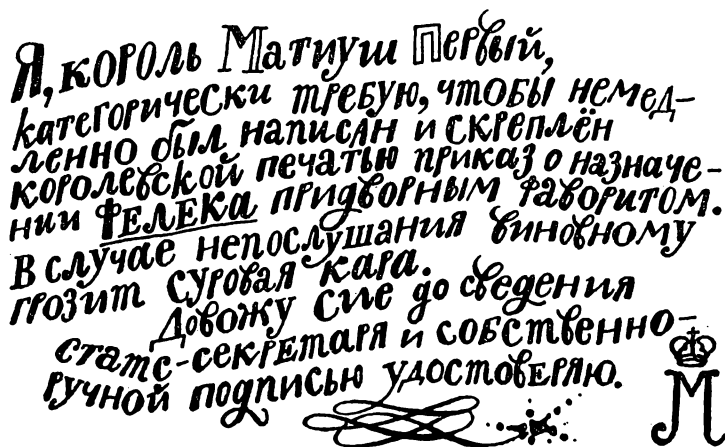 Я, король Матиуш Первый,
категорически требую, чтобы немед-
ленно был написан и скреплён
королевской печатью приказ о назначе-
нии Фелека придворным фаворитом.
В случае непослушания виновному
грозит суровая кара.
Довожу сие до сведения
статс-секретаря и собственно-
ручной подписью удостоверяю.
М